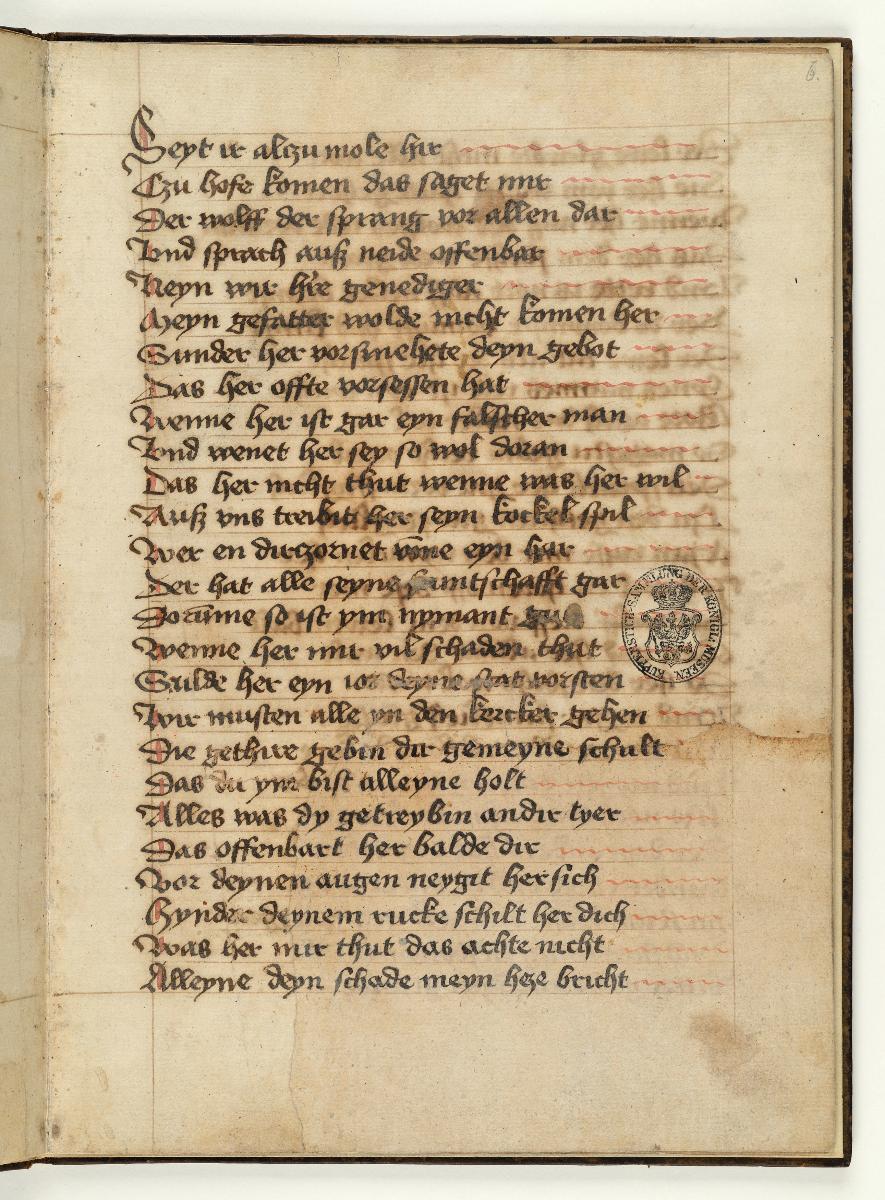 6.
Seyt ir alczumole hir
Czu hofe komen das saget mir
Der wolff der sprang vor allen dar
Vnd sprach auß neide offenbar
Neyn wir hr̄e genediger
Meyn gefatter wolde nicht komen her
Sunder her vorsmehete deyn gebot
Das her offte vorsessen hat
Wenne her ist gar eyn falscher man
Vnd wenet her sey so wol doran
Das her nicht thut wenne was her wil
Auß vns treibit her seyn kockel spil
Wer en dirczornet vm̄e eyn har
Der hat alle seyne gar
Dorūme so ist ym nymant
Wenne her mir vil schaden thut
Sulde her eyn ior deyne stat vorsten
Wir musten alle yn den kercker gehen
Die gethire gebin dir gemeyne schult
Das du ym bist alleyne holt
Alles was dy getreybin andir tyer
Das offenbart her balde dir
Vor deynen augen neygit her sich
Hynder deynem rucke schilt her dich
Was her mir thut das achte nicht
Alleyne deyn schade meyn hcze bricht
KUPFERSTICH-SAMMLUNG DER KÖNIGL. MUSEEN